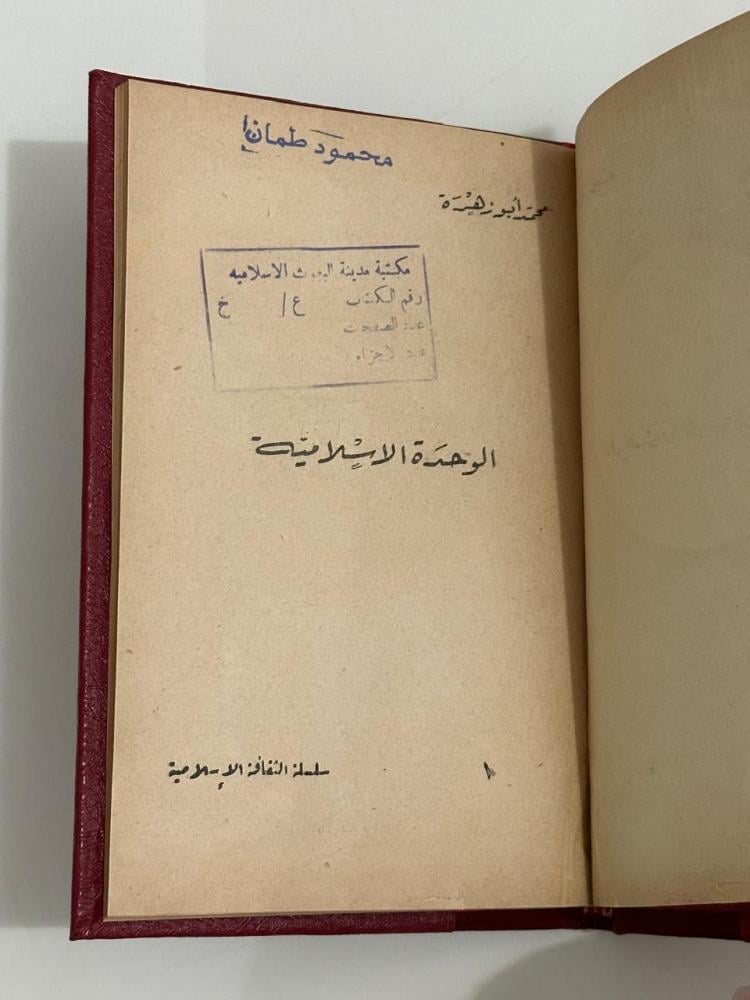 محمود طمان
محمد أبو زهرة
مكتبة مدينة البعوث الاسلاميه
رقم الكتاب ع / خ
عدد الصفحات
عدد الاجزاء
الوحدة الاسْلاميّة
سلسلة الثقافة الإسلامية ١